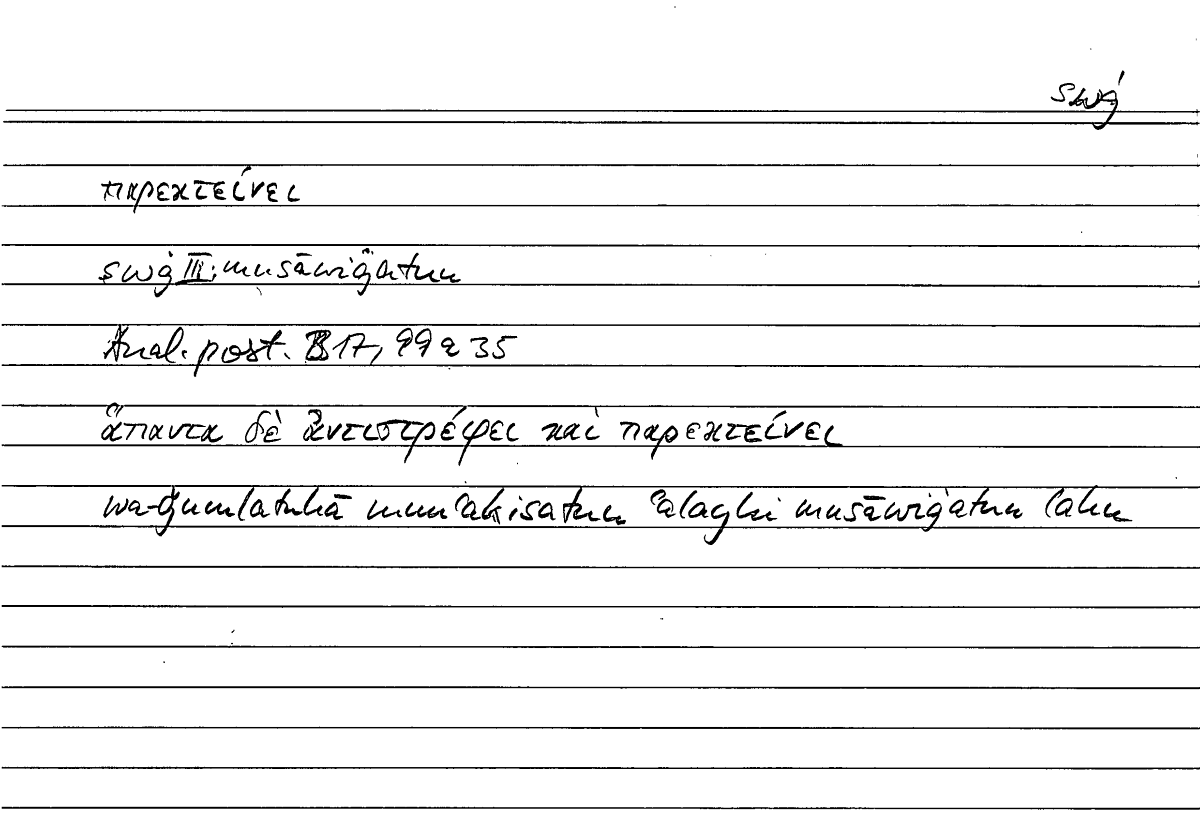 swǵ
παρεκτείνει
swġ III: musāwiġatun
Anal. post. B 17, 99 a 35
ἅπαντα δὲ ἀντιστρέφει καὶ παρεκτείνει
wa-ǧumlatuhā munʿakisatun ʿalayhi musāwiġatun lahu